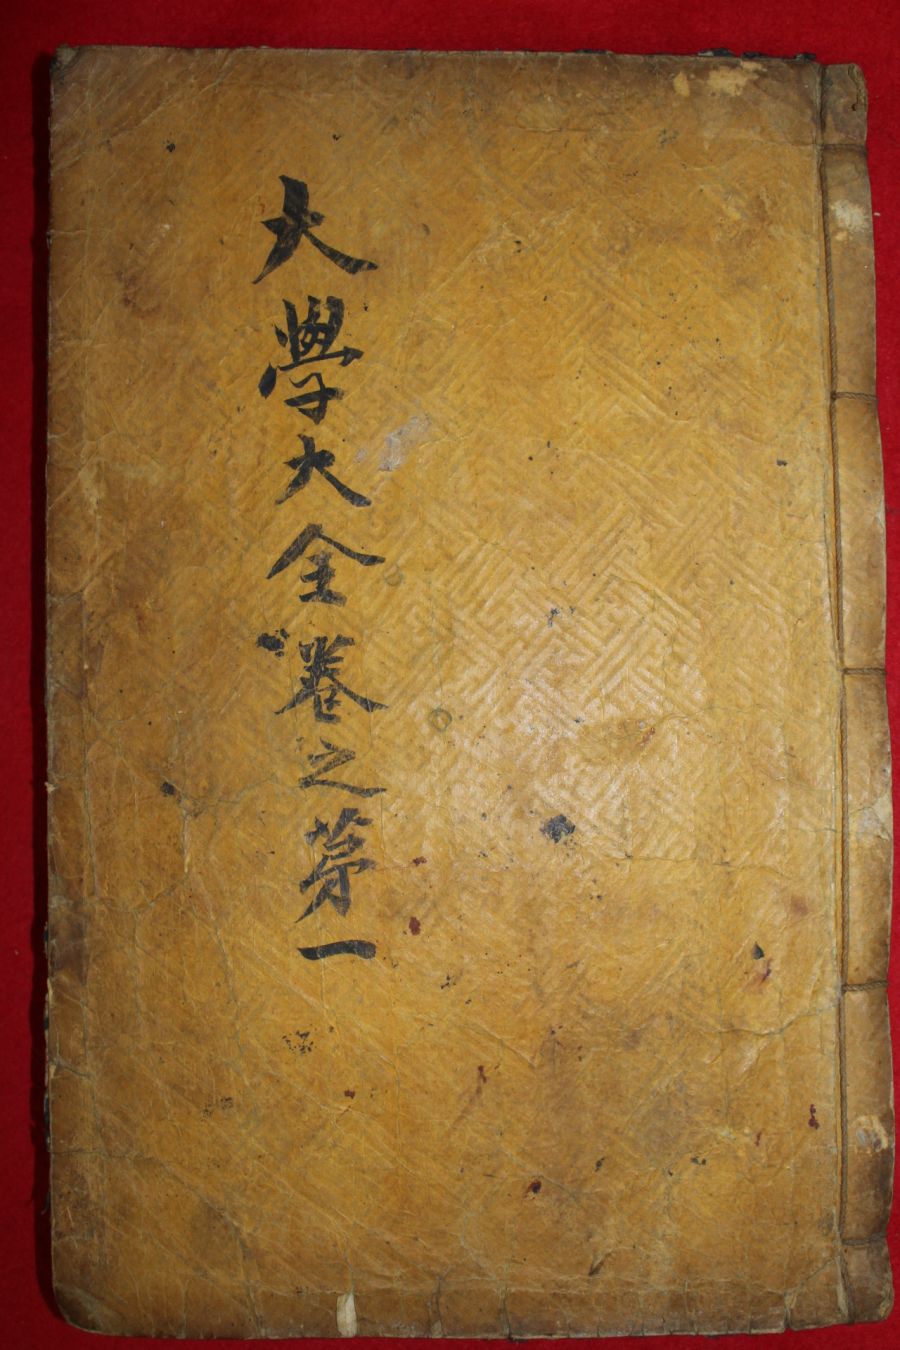 大學大全卷之苐一